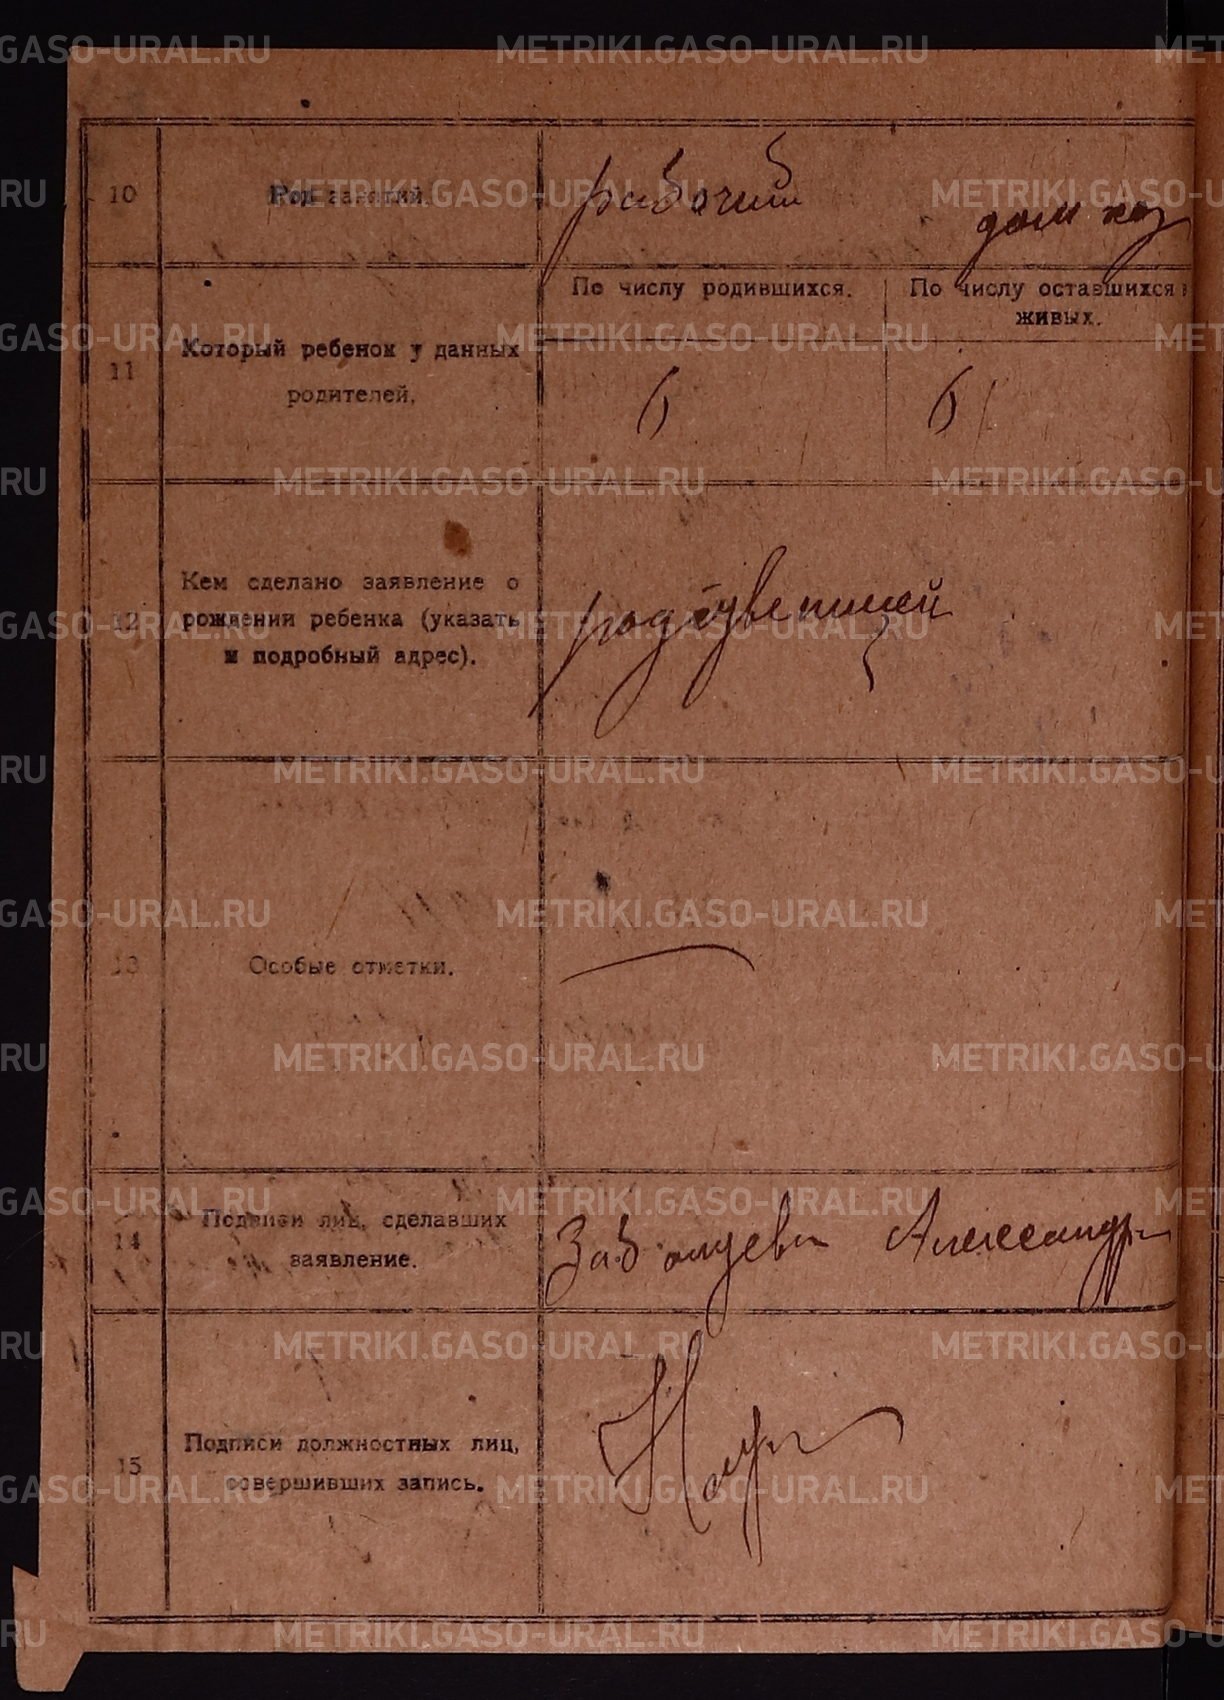 METRIKI.GASO-URAL.RU
10 Род занятий. рабочий дом хоз
11 Который ребенок у данных родителей.
По числу родившихся. По числу оставшихся в живых.
6 6
12 Кем сделано заявление о
рождении ребенка (указать
и подробный адрес).
родственницей
13 Особые отметки. —
14 Подписи лиц, сделавших
заявление.
Александра
15 Подписи должностных лиц,
совершивших запись.